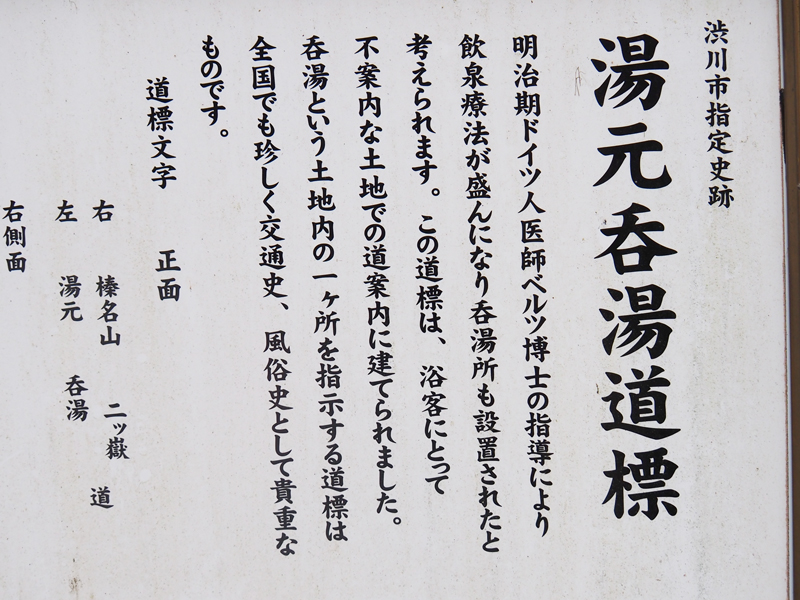 渋川市指定史跡
湯元呑湯道標
明治期ドイツ人医師ベルツ博士の指導により
飲泉療法が盛んになり呑湯所も設置されたと
考えられます。この道標は、浴客にとって
不案内な土地での道案内に建てられました。
呑湯という土地内の一ヶ所を指示する道標は
全国でも珍しく交通史、風俗史として貴重な
ものです。
道標文字 正面
右 榛名山 二ッ嶽 道
左 湯元 呑湯
右側面